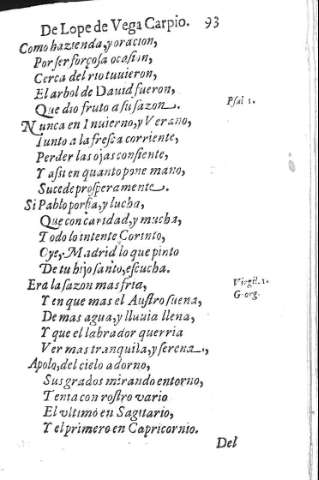 De Lope de Vega Carpio. 93
Como hazienda, y oracion,
Por ser forçosa ocasion,
Cerca del rio tuuieron,
El arbol de Dauid fueron,
Que dio fruto a su sazon.
Psal 1.
Nunca en Inuierno, y Verano,
Iunto a la fresca corriente,
Perder las ojas consiente,
Y assi en quanto pone mano,
Sucede prosperamente.
Si Pablo porfia, y lucha,
Que con caridad, y mucha,
Todo lo intente Corinto,
Oye, Madrid lo que pinto
De tu hijo santo, escucha.
Era la sazon mas fria,
Virgil. 1.
Y en que mas el Austro suena,
Georg.
De mas agua, y lluuia llena,
Y que el labrador querria
Ver mas tranquila, y serena,
Apolo, del cielo adorno,
Sus grados mirando entorno,
Tenta con rostro vario
El vltimo en Sagitario,
Y el primero en Capricornio.
Del